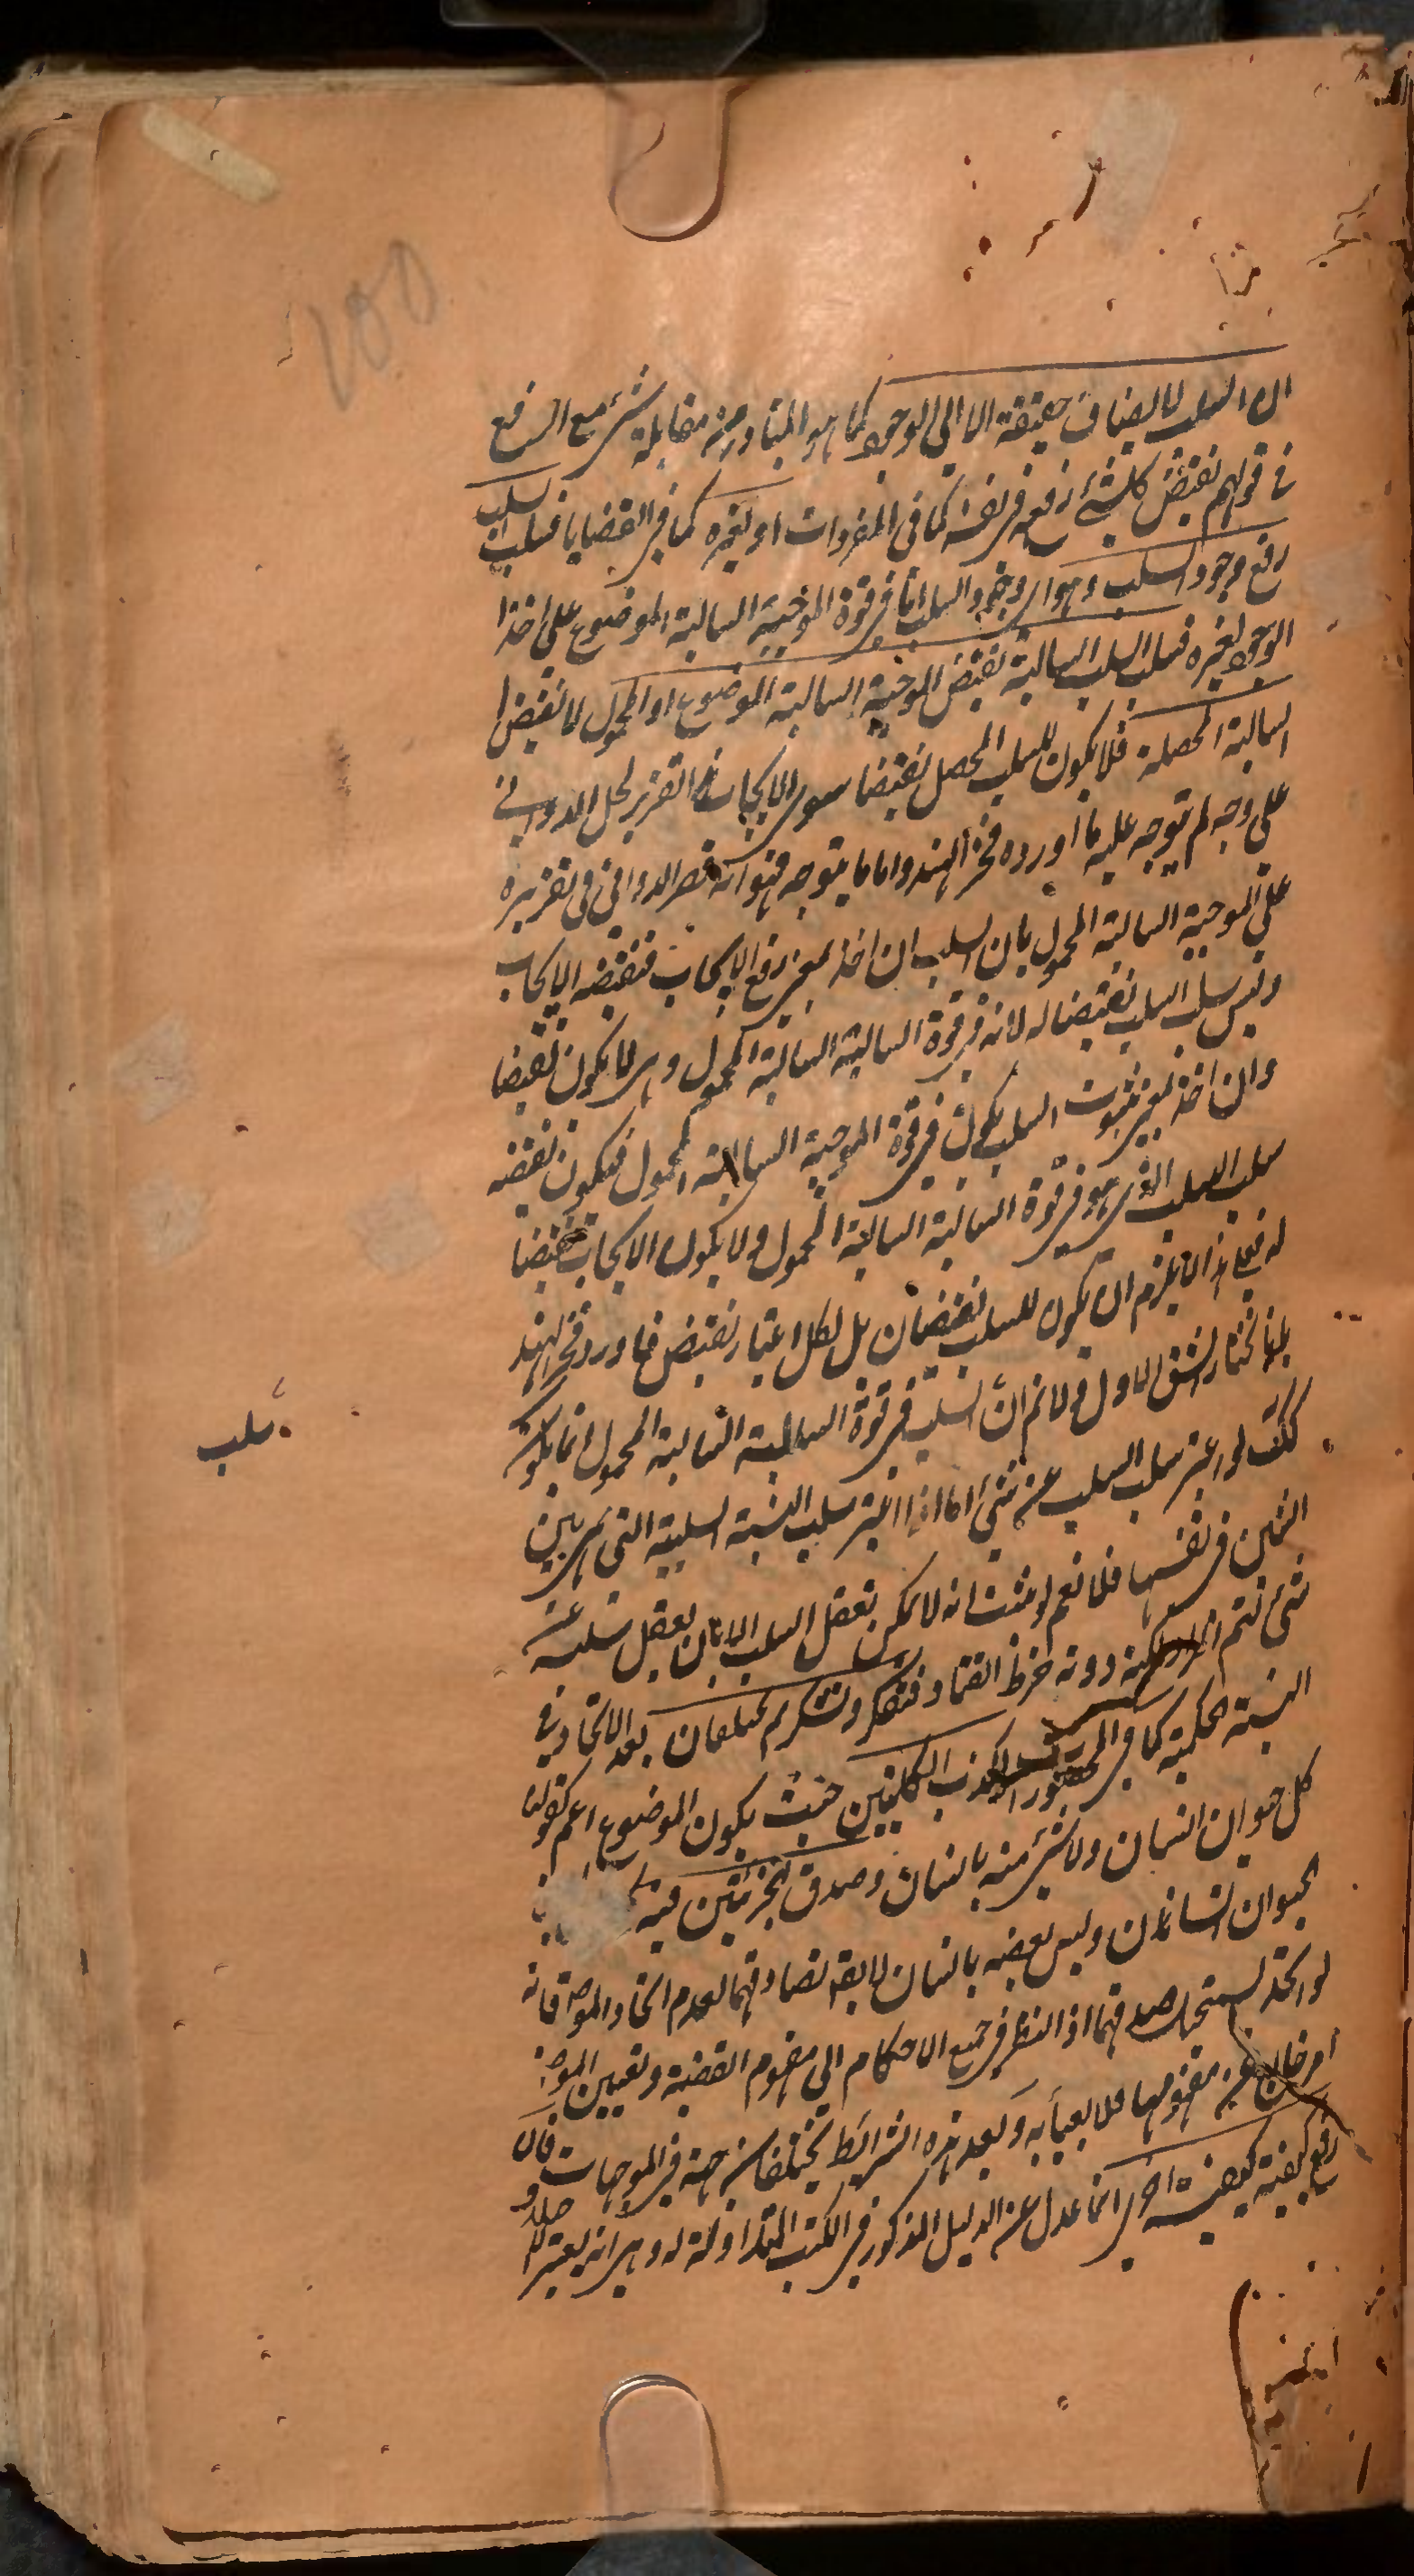 ان السلب لا يضاف حقيقة الا الى الوجود كما هو المتبادر من مقابلة شئ مع الرفع
فى قولهم نقيض كل شئ رفعه فى نفسه كما فى المفردات او لغيره كما فى القضايا فسلب السلب
رفع وجود السلب وهو اى وجود السلب انما فى قوة الموجبة السالبة الموضوع على اخذ
الوجود لغيره فسلب السلب السالبة نقيض الموجبة السالبة الموضوع او المحمول لا نقيض
السالبة المحصلة فلا يكون للسلب المحصل نقيضا سوى الايجاب هذا تقرير لحل الدوانى
على وجه لم يتوجه عليه ما اورده فخر الهند واما ما يتوجه فهو انه قصر الدوانى فى تقريره
على الموجبة السالبة المحمول بان السلب ان اخذ بمعنى رفع الايجاب فنقيضه الايجاب
وليس سلب السلب نقيضا له لانه فى قوة السالبة السالبة المحمول وهى لا يكون نقيضا
وان اخذ بمعنى ثبوت السلب يكون فى قوة الموجبة السالبة المحمول فيكون نقيضه
سلب السلب الذى هو فى قوة السالبة السالبة المحمول ولا يكون الايجاب نقيضا
له فعلى هذا لا يلزم ان يكون للسلب نقيضان بل لكل اعتبار نقيض فاورد فخر الهند
بانا نختار الشق الاول ولا نم ان السلب فى قوة السالبة السالبة المحمول انما يكون
سلب
كك لو اعتبر سلب السلب عن شئ اما اذا اعتبر سلب النسبة السلبية التى هى بين
الشئين فى نفسها فلا نعم لو ثبت انه لا يمكن تعقل السلب الا بان يعقل سلبه عن
شئ لتم دونه خرط القتاد فتفكر وتشكر ثم يختلفان بعد الاتحاد فى
النسبة الحكمية كما فى المحصورات لكذب الكليتين حيث يكون الموضوع اعم كقولنا
كل حيوان انسان ولا شئ منه بانسان وصدق الجزئيتين فيه
الحيوان انسان وليس بعضه بانسان لا يقه تصادقهما لعدم اتحاد الموضوع فانه
لو اتحد لستحال صدقهما اذ النظر فى جميع الاحكام الى مفهوم القضية وتعيين الموضوع
امر خارج عن مفهومها فلا يعبأ به وبعد هذه الشرائط يختلفان جهة فى الموجهات فان
رفع كيفية كيفية اخرى انما عدل عن الدليل المذكور فى الكتب المتداولة له وهى انه يعتبر